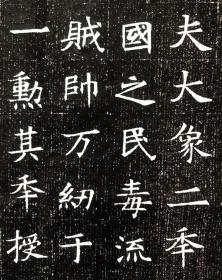 夫大象二年
國之民毒流
賊帥万紉于
一勳其年授